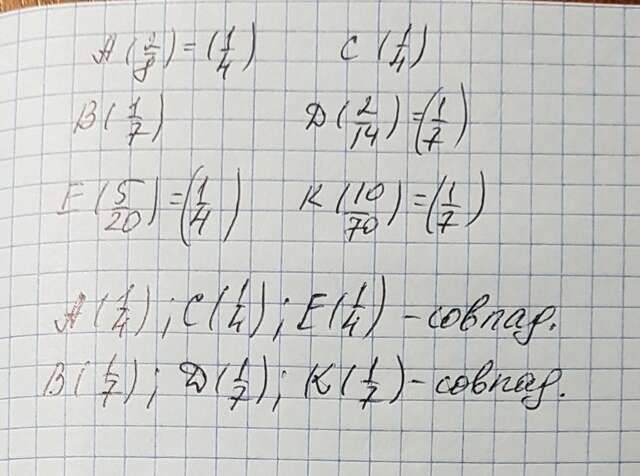 A(2/8)=(1/4) C(1/4)
B(1/7) D(2/14)=(1/7)
E(5/20)=(1/4) K(10/70)=(1/7)
A(1/4); C(1/4); E(1/4) - совпад.
B(1/7); D(1/7); K(1/7) - совпад.